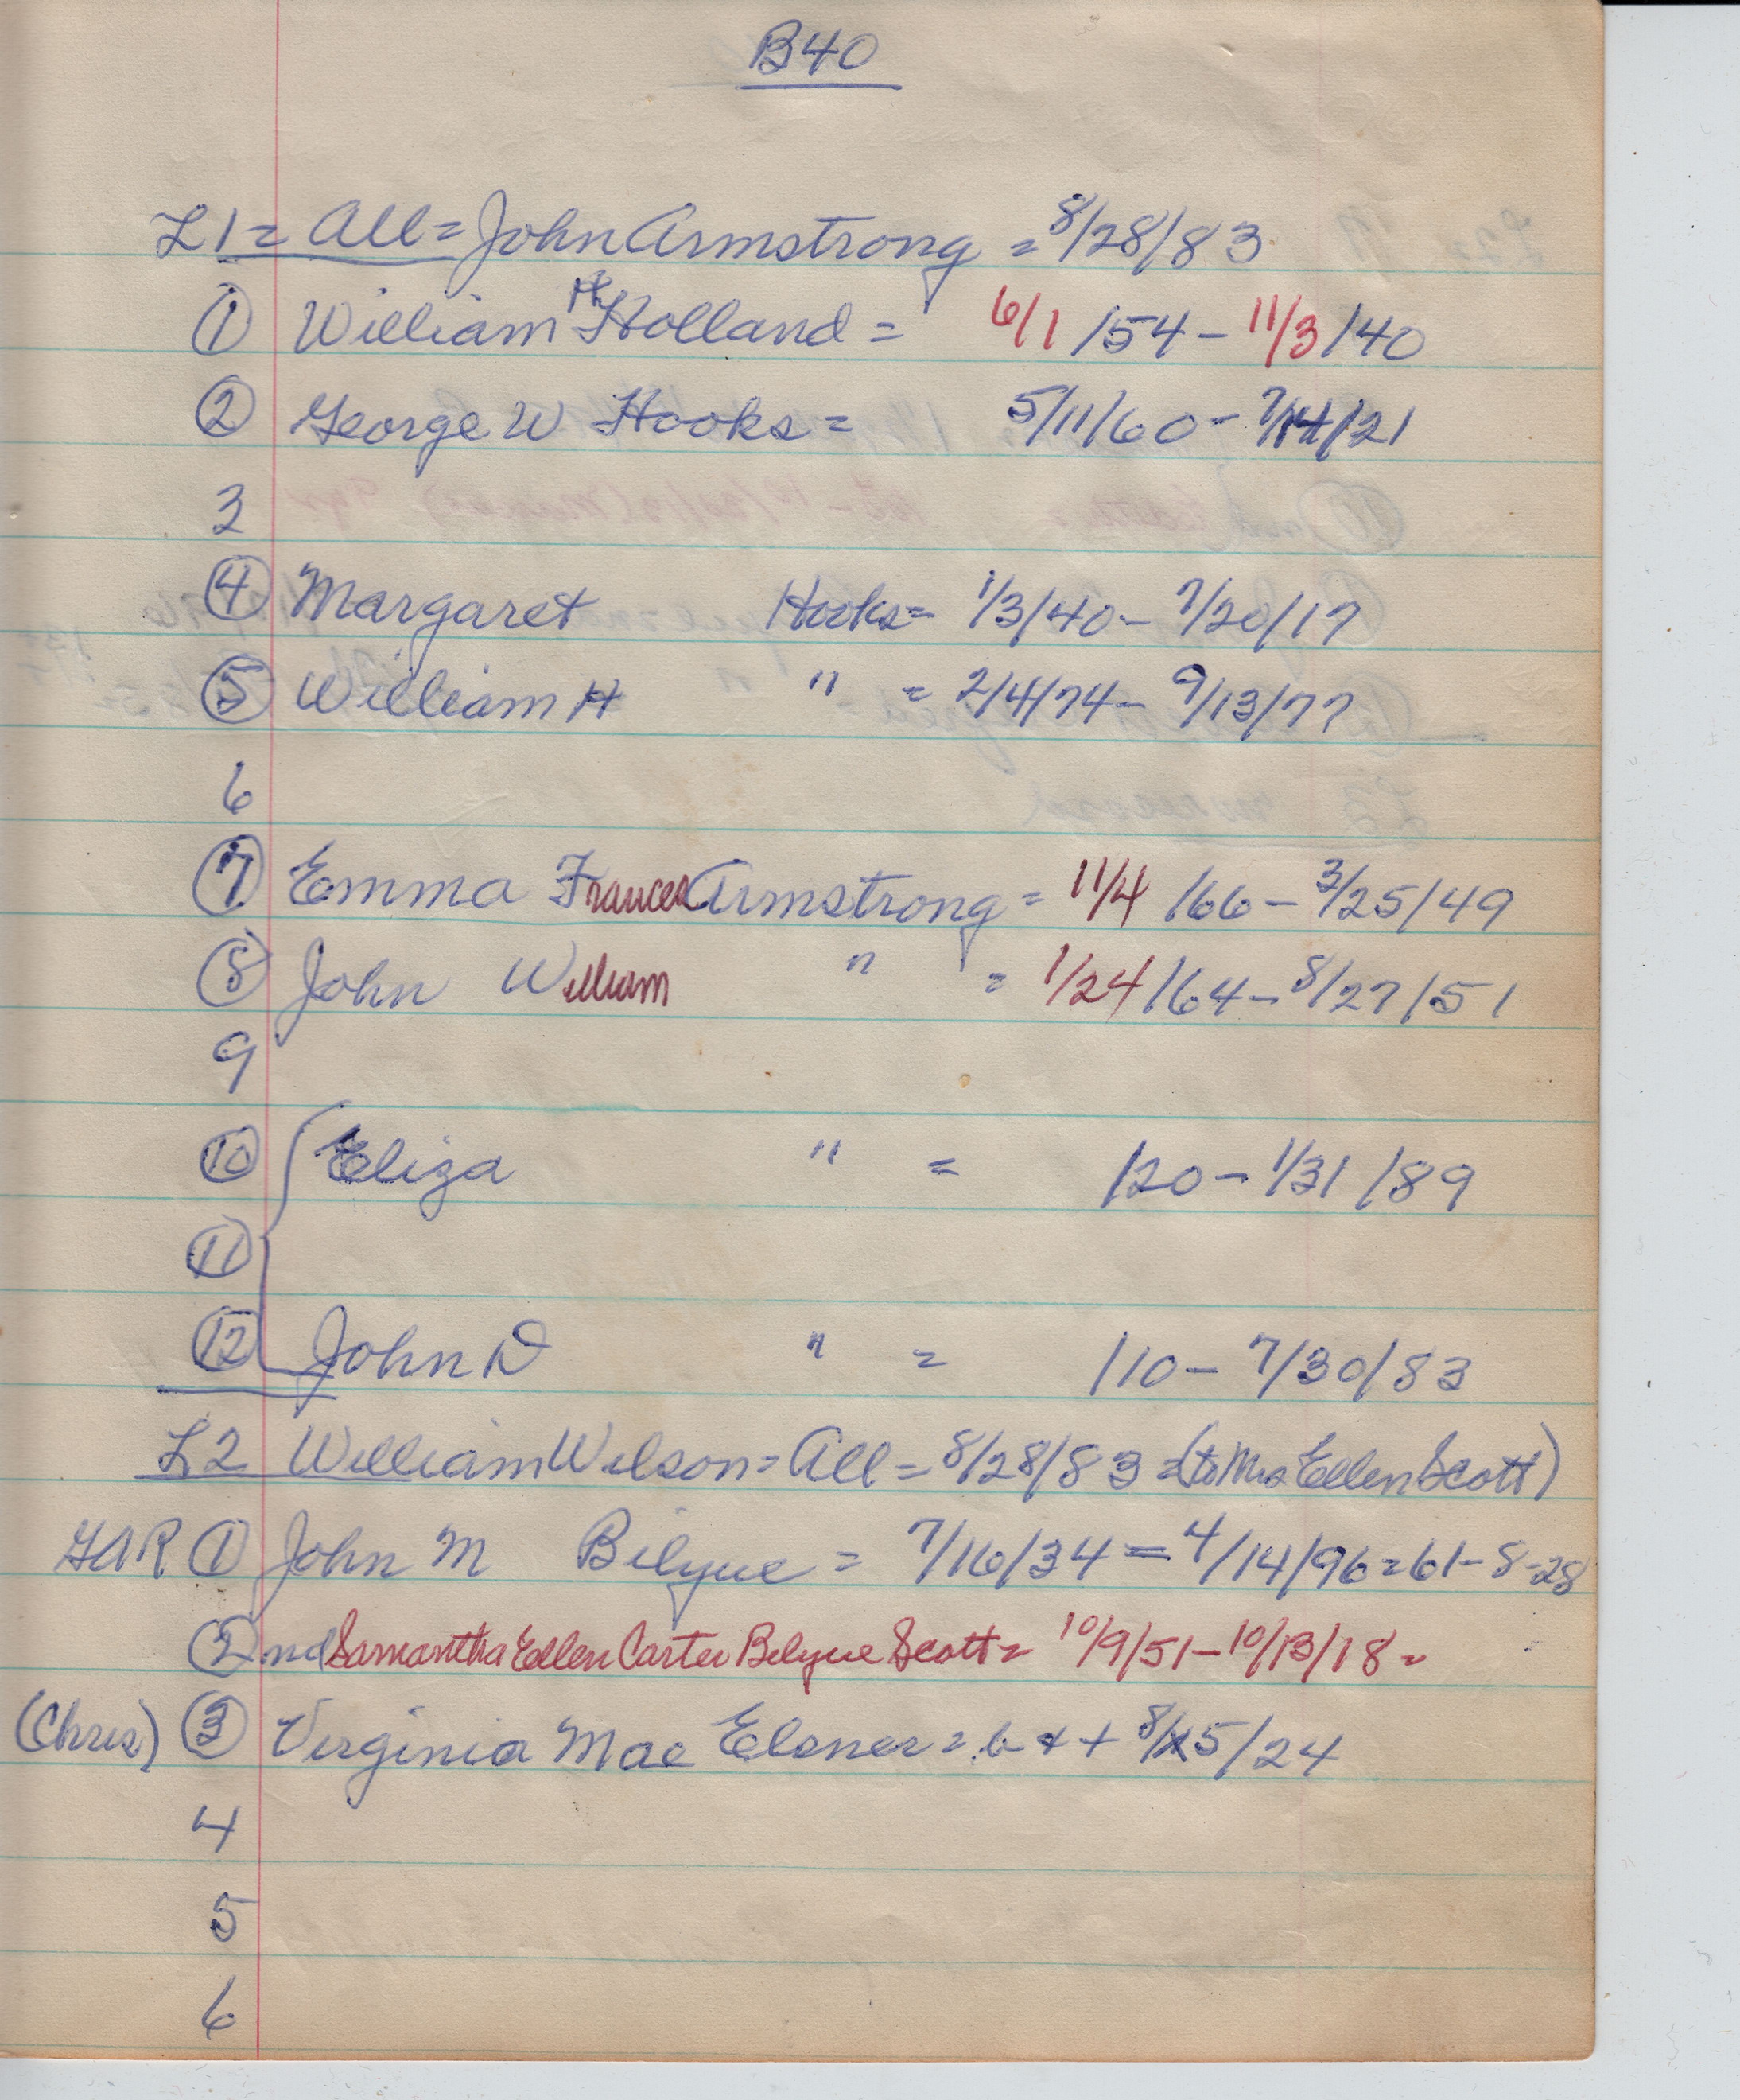 B40
L1 = All = John Armstrong = 8/28/83
① William H Holland = 6/1/54 - 11/3/40
② George W Hooks = 5/11/60 - 7/14/21
3
④ Margaret Hooks = 1/3/40 - 7/20/17
⑤ William H " = 2/4/74 - 9/13/77
6
⑦ Emma Frances Armstrong = 11/4/66 - 3/25/49
⑧ John William " = 1/24/64 - 8/27/51
9
⑩ Eliza " = /20 - 1/31/89
⑪
⑫ John D " = /10 - 7/30/83
L2 William Wilson = All = 8/28/83 = (to Mrs Ellen Scott)
GAR ① John M Bilyue = 7/16/34 = 4/14/96 = 61-8-28
②nd Samantha Ellen Carter Bilyue Scott = 10/9/51 - 10/13/18 =
(Chris) ③ Virginia Mae Elsner = b + + 8/5/24
4
5
6